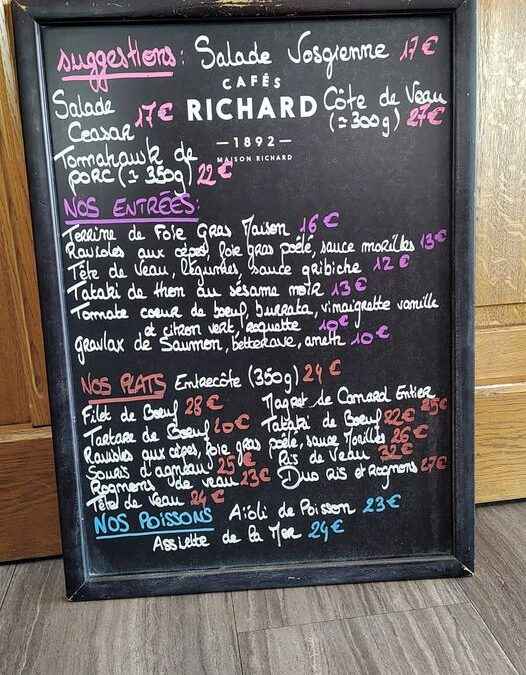 Suggestions: Salade Vosgienne 17€
CAFÉS
RICHARD
1892
MAISON RICHARD
Salade Ceasar 17€
Côte de Veau (≃ 300g) 27€
Tormahawk de porc (≃ 350g) 22€
NOS ENTRÉES:
Terrine de Foie Gras Maison 16€
Ravioles aux cèpes, foie gras poêlé, sauce morilles 13€
Tête de Veau, légumes, sauce gribiche 12€
Tataki de thon au sésame noir 13€
Tomate coeur de boeuf, burrata, vinaigrette vanille
et citron vert, roquette 10€
gravlax de Saumon, betterave, aneth 10€
NOS PLATS Entrecôte (350g) 24€
Filet de Boeuf 28€ Magret de Canard Entier 25€
Tartare de Boeuf 20€ Tataki de Boeuf 22€
Ravioles aux cèpes, foie gras poêlé, sauce Morilles 26€
Souris d'agneau 25€ Ris de Veau 32€
Rognons de veau 23€ Duo Ris et Rognons 27€
Tête de Veau 24€
NOS POISSONS Aïoli de Poisson 23€
Assiette de la Mer 24€